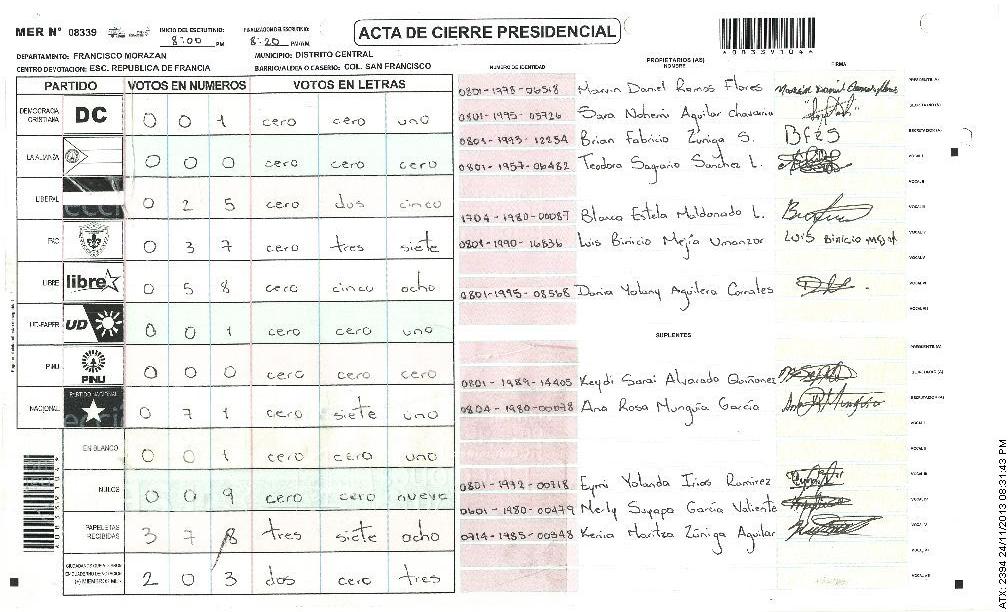 MER N° 08339
INICIO DEL ESCRUTINIO: 8:00 PM
FINALIZACION DEL ESCRUTINIO: 8:20 PM/AM
ACTA DE CIERRE PRESIDENCIAL
*08339104*
DEPARTAMENTO: FRANCISCO MORAZAN
MUNICIPIO: DISTRITO CENTRAL
CENTRO DE VOTACION: ESC. REPUBLICA DE FRANCIA
BARRIO/ALDEA O CASERIO: COL. SAN FRANCISCO
PARTIDO VOTOS EN NUMEROS VOTOS EN LETRAS
DEMOCRACIA CRISTIANA DC 0 0 1 cero cero uno
LA ALIANZA 0 0 0 cero cero cero
LIBERAL 0 2 5 cero dos cinco
PAC 0 3 7 cero tres siete
LIBRE libre 0 5 8 cero cinco ocho
UD-FAPER UD 0 0 1 cero cero uno
PINU PINU 0 0 0 cero cero cero
NACIONAL PARTIDO NACIONAL 0 7 1 cero siete uno
EN BLANCO 0 0 1 cero cero uno
NULOS 0 0 9 cero cero nueve
PAPELETAS RECIBIDAS 3 7 8 tres siete ocho
2 0 3 dos cero tres
NUMERO DE IDENTIDAD
PROPIETARIOS (AS)
NOMBRE
FIRMA
0801-1978-06518 Marvin Daniel Ramos Flores
PRESIDENTE (A)
0801-1995-05726 Sara Nohemi Aguilar Chavarria
SECRETARIO (A)
0801-1993-12254 Brian Fabricio Zuniga S. BFZS
ESCRUTADOR (A)
0801-1957-06482 Teodora Sagario Sanchez L.
VOCAL I
VOCAL II
1704-1980-00087 Blanca Estela Maldonado L.
VOCAL III
0801-1990-16836 Luis Binicio Mejía Umanzor Luis Binicio Mejia
VOCAL IV
VOCAL V
0801-1995-08568 Dania Yolany Aguilera Corrales
VOCAL VI
VOCAL VII
SUPLENTES
PRESIDENTE (A)
0801-1989-14405 Keydi Sarai Alvarado Quiñonez
SECRETARIO (A)
0804-1980-00078 Ana Rosa Munguia García
ESCRUTADOR (A)
VOCAL I
VOCAL II
0801-1972-00718 Eymi Yolanda Irias Ramirez
VOCAL III
0601-1980-00479 Nerly Suyapa García Valiente
VOCAL IV
0714-1985-00348 Kenia Maritza Zúniga Aguilar
VOCAL V
VOCAL VI
VOCAL VII
ATX: 2394 24/11/2013 08:31:43 PM